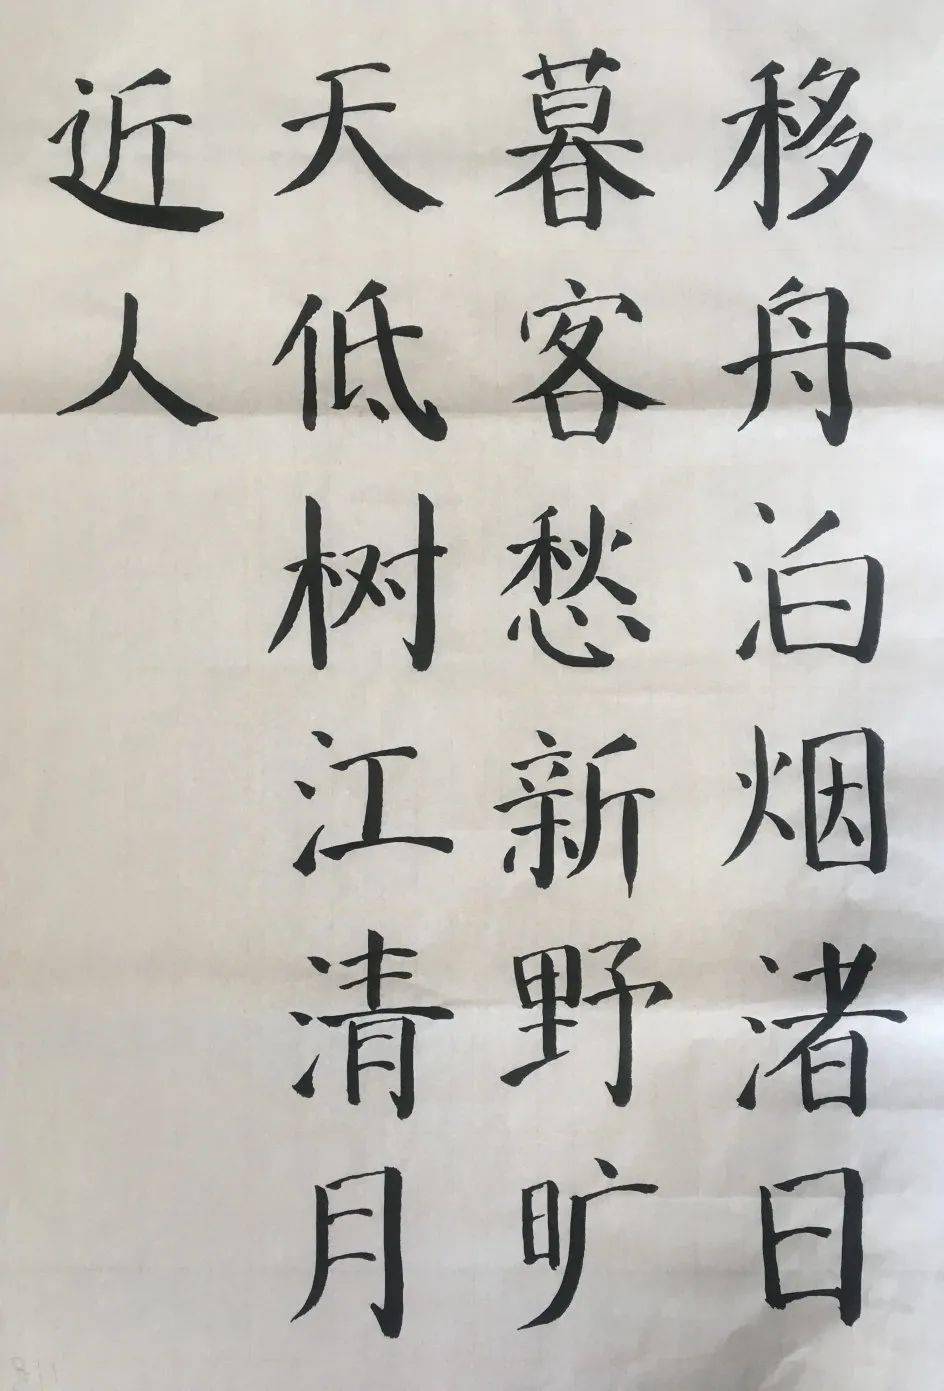 移舟泊烟渚日
暮客愁新野旷
天低树江清月
近人